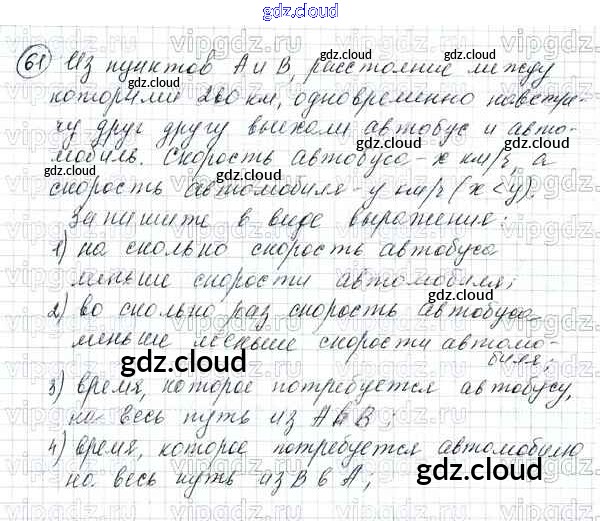 gdz.cloud
61 Из пунктов А и В, расстояние между
которыми 260 км, одновременно навстре-
чу друг другу выехали автобус и авто-
мобиль. Скорость автобуса - x км/ч, а
скорость автомобиля - y км/ч (x < y).
Запишите в виде выражения:
1) на сколько скорость автобуса
меньше скорости автомобиля;
2) во сколько раз скорость автобуса
меньше меньше скорости автомо-
биля;
3) время, которое потребуется автобусу,
на весь путь из А в В;
4) время, которое потребуется автомобилю
на весь путь из В в А;